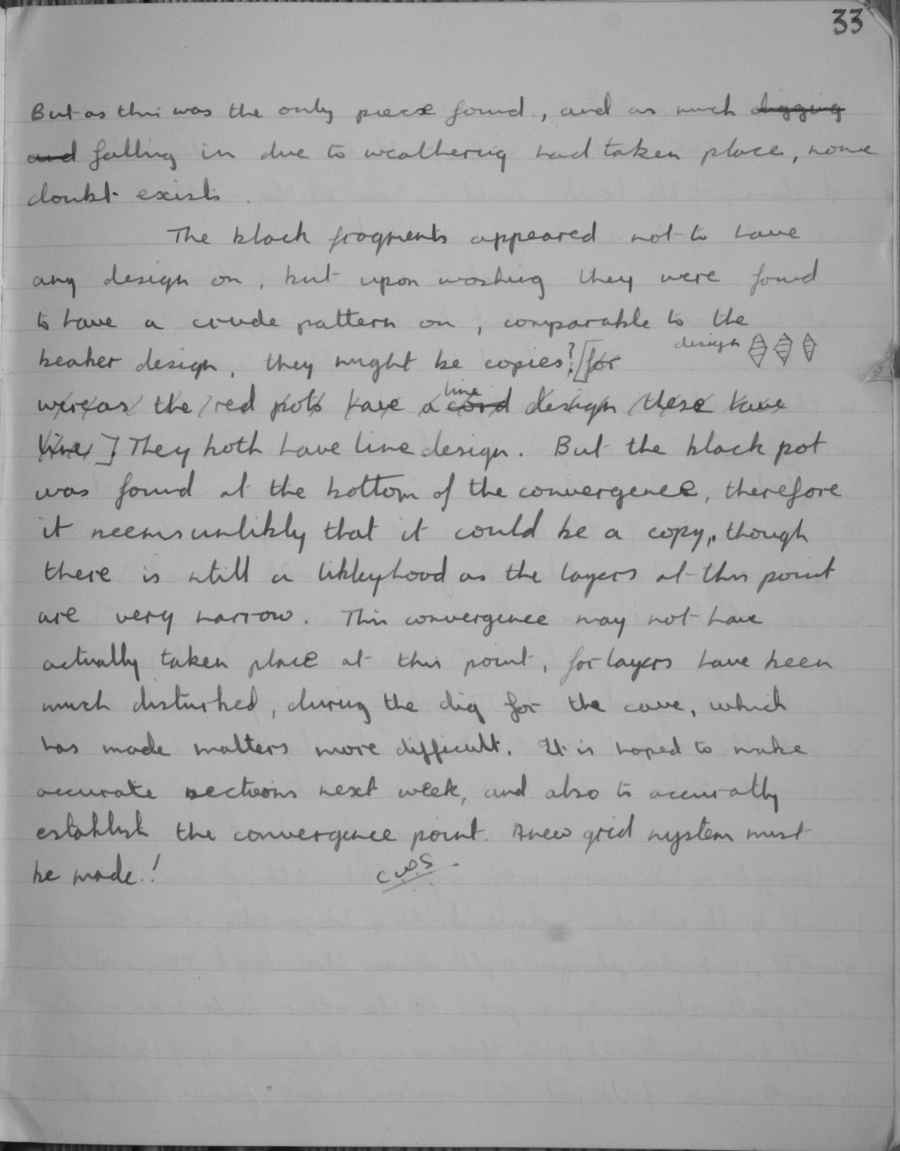 33
But as this was the only piece found, and as much digging
and falling in due to weathering had taken place, some
doubt exists.
The black fragments appeared not to have
any design on, but upon washing they were found
to have a crude pattern on, comparable to the
beaker design, they might be copies? [for design
wereas the red pots have a cord line design these have
line] They both have line design. But the black pot
was found at the bottom of the convergence, therefore
it seems unlikly that it could be a copy, though
there is still a likleyhood as the layers at this point
are very narrow. This convergence may not have
actually taken place at this point, for layers have been
much disturbed, during the dig for the cave, which
has made matters more difficult. It is hoped to make
accurate sections next week, and also to accuratly
establish the convergence point. A new grid system must
be made!